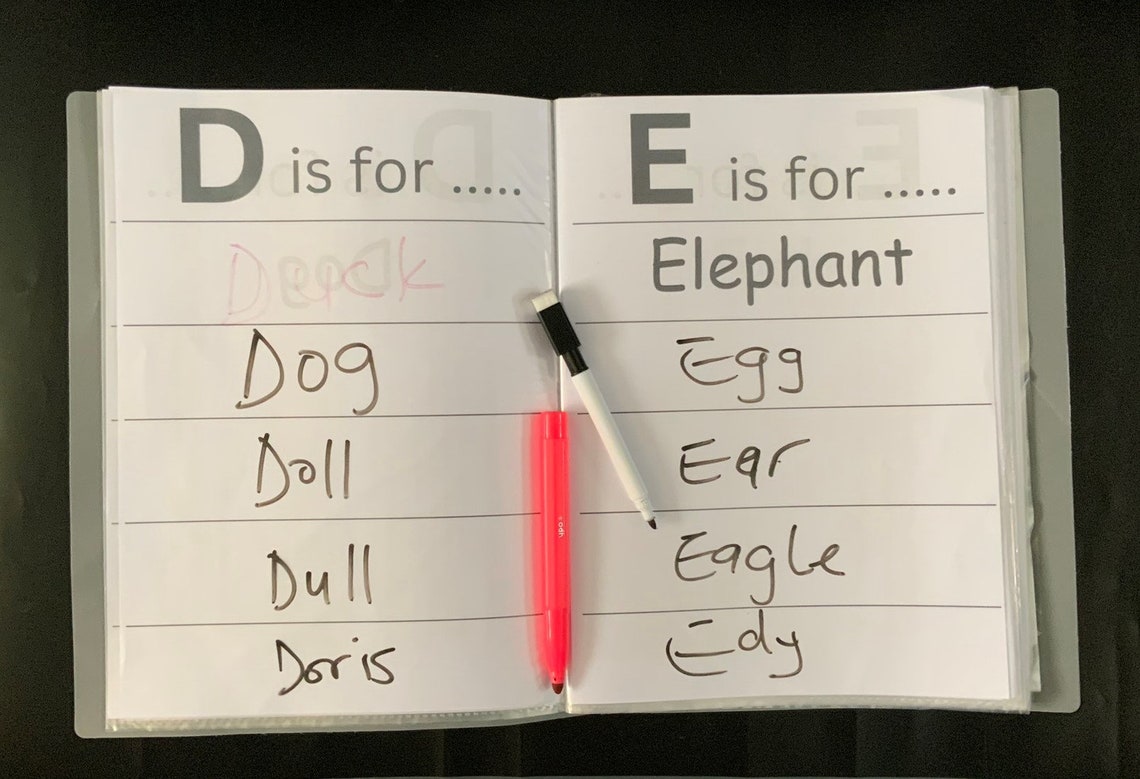 D is for .....
Duck
Dog
Doll
Dull
Doris
E is for .....
Elephant
Egg
Ear
Eagle
Edy